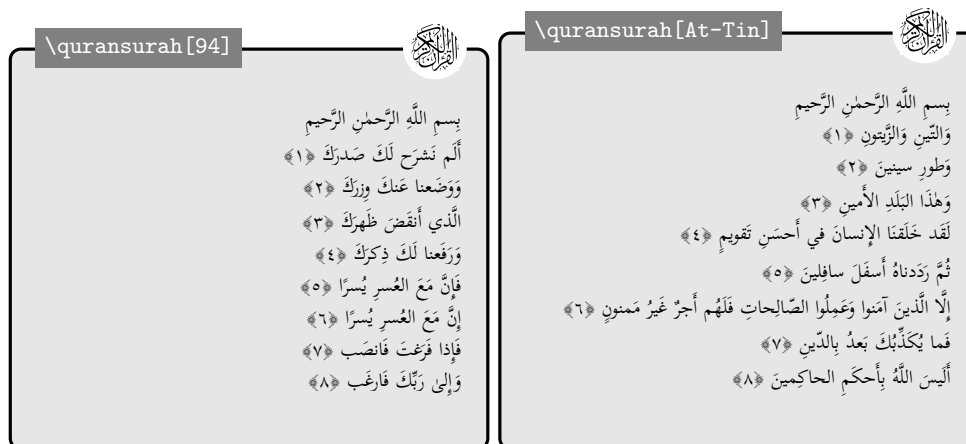 \quransurah[94]
بِسمِ اللَّهِ الرَّحمٰنِ الرَّحيمِ
أَلَم نَشرَح لَكَ صَدرَكَ ﴿١﴾
وَوَضَعنا عَنكَ وِزرَكَ ﴿٢﴾
الَّذي أَنقَضَ ظَهرَكَ ﴿٣﴾
وَرَفَعنا لَكَ ذِكرَكَ ﴿٤﴾
فَإِنَّ مَعَ العُسرِ يُسرًا ﴿٥﴾
إِنَّ مَعَ العُسرِ يُسرًا ﴿٦﴾
فَإِذا فَرَغتَ فَانصَب ﴿٧﴾
وَإِلىٰ رَبِّكَ فَارغَب ﴿٨﴾
\quransurah[At-Tin]
بِسمِ اللَّهِ الرَّحمٰنِ الرَّحيمِ
وَالتّينِ وَالزَّيتونِ ﴿١﴾
وَطورِ سينينَ ﴿٢﴾
وَهٰذَا البَلَدِ الأَمينِ ﴿٣﴾
لَقَد خَلَقنَا الإِنسانَ في أَحسَنِ تَقويمٍ ﴿٤﴾
ثُمَّ رَدَدناهُ أَسفَلَ سافِلينَ ﴿٥﴾
إِلَّا الَّذينَ آمَنوا وَعَمِلُوا الصّالِحاتِ فَلَهُم أَجرٌ غَيرُ مَمنونٍ ﴿٦﴾
فَما يُكَذِّبُكَ بَعدُ بِالدّينِ ﴿٧﴾
أَلَيسَ اللَّهُ بِأَحكَمِ الحاكِمينَ ﴿٨﴾